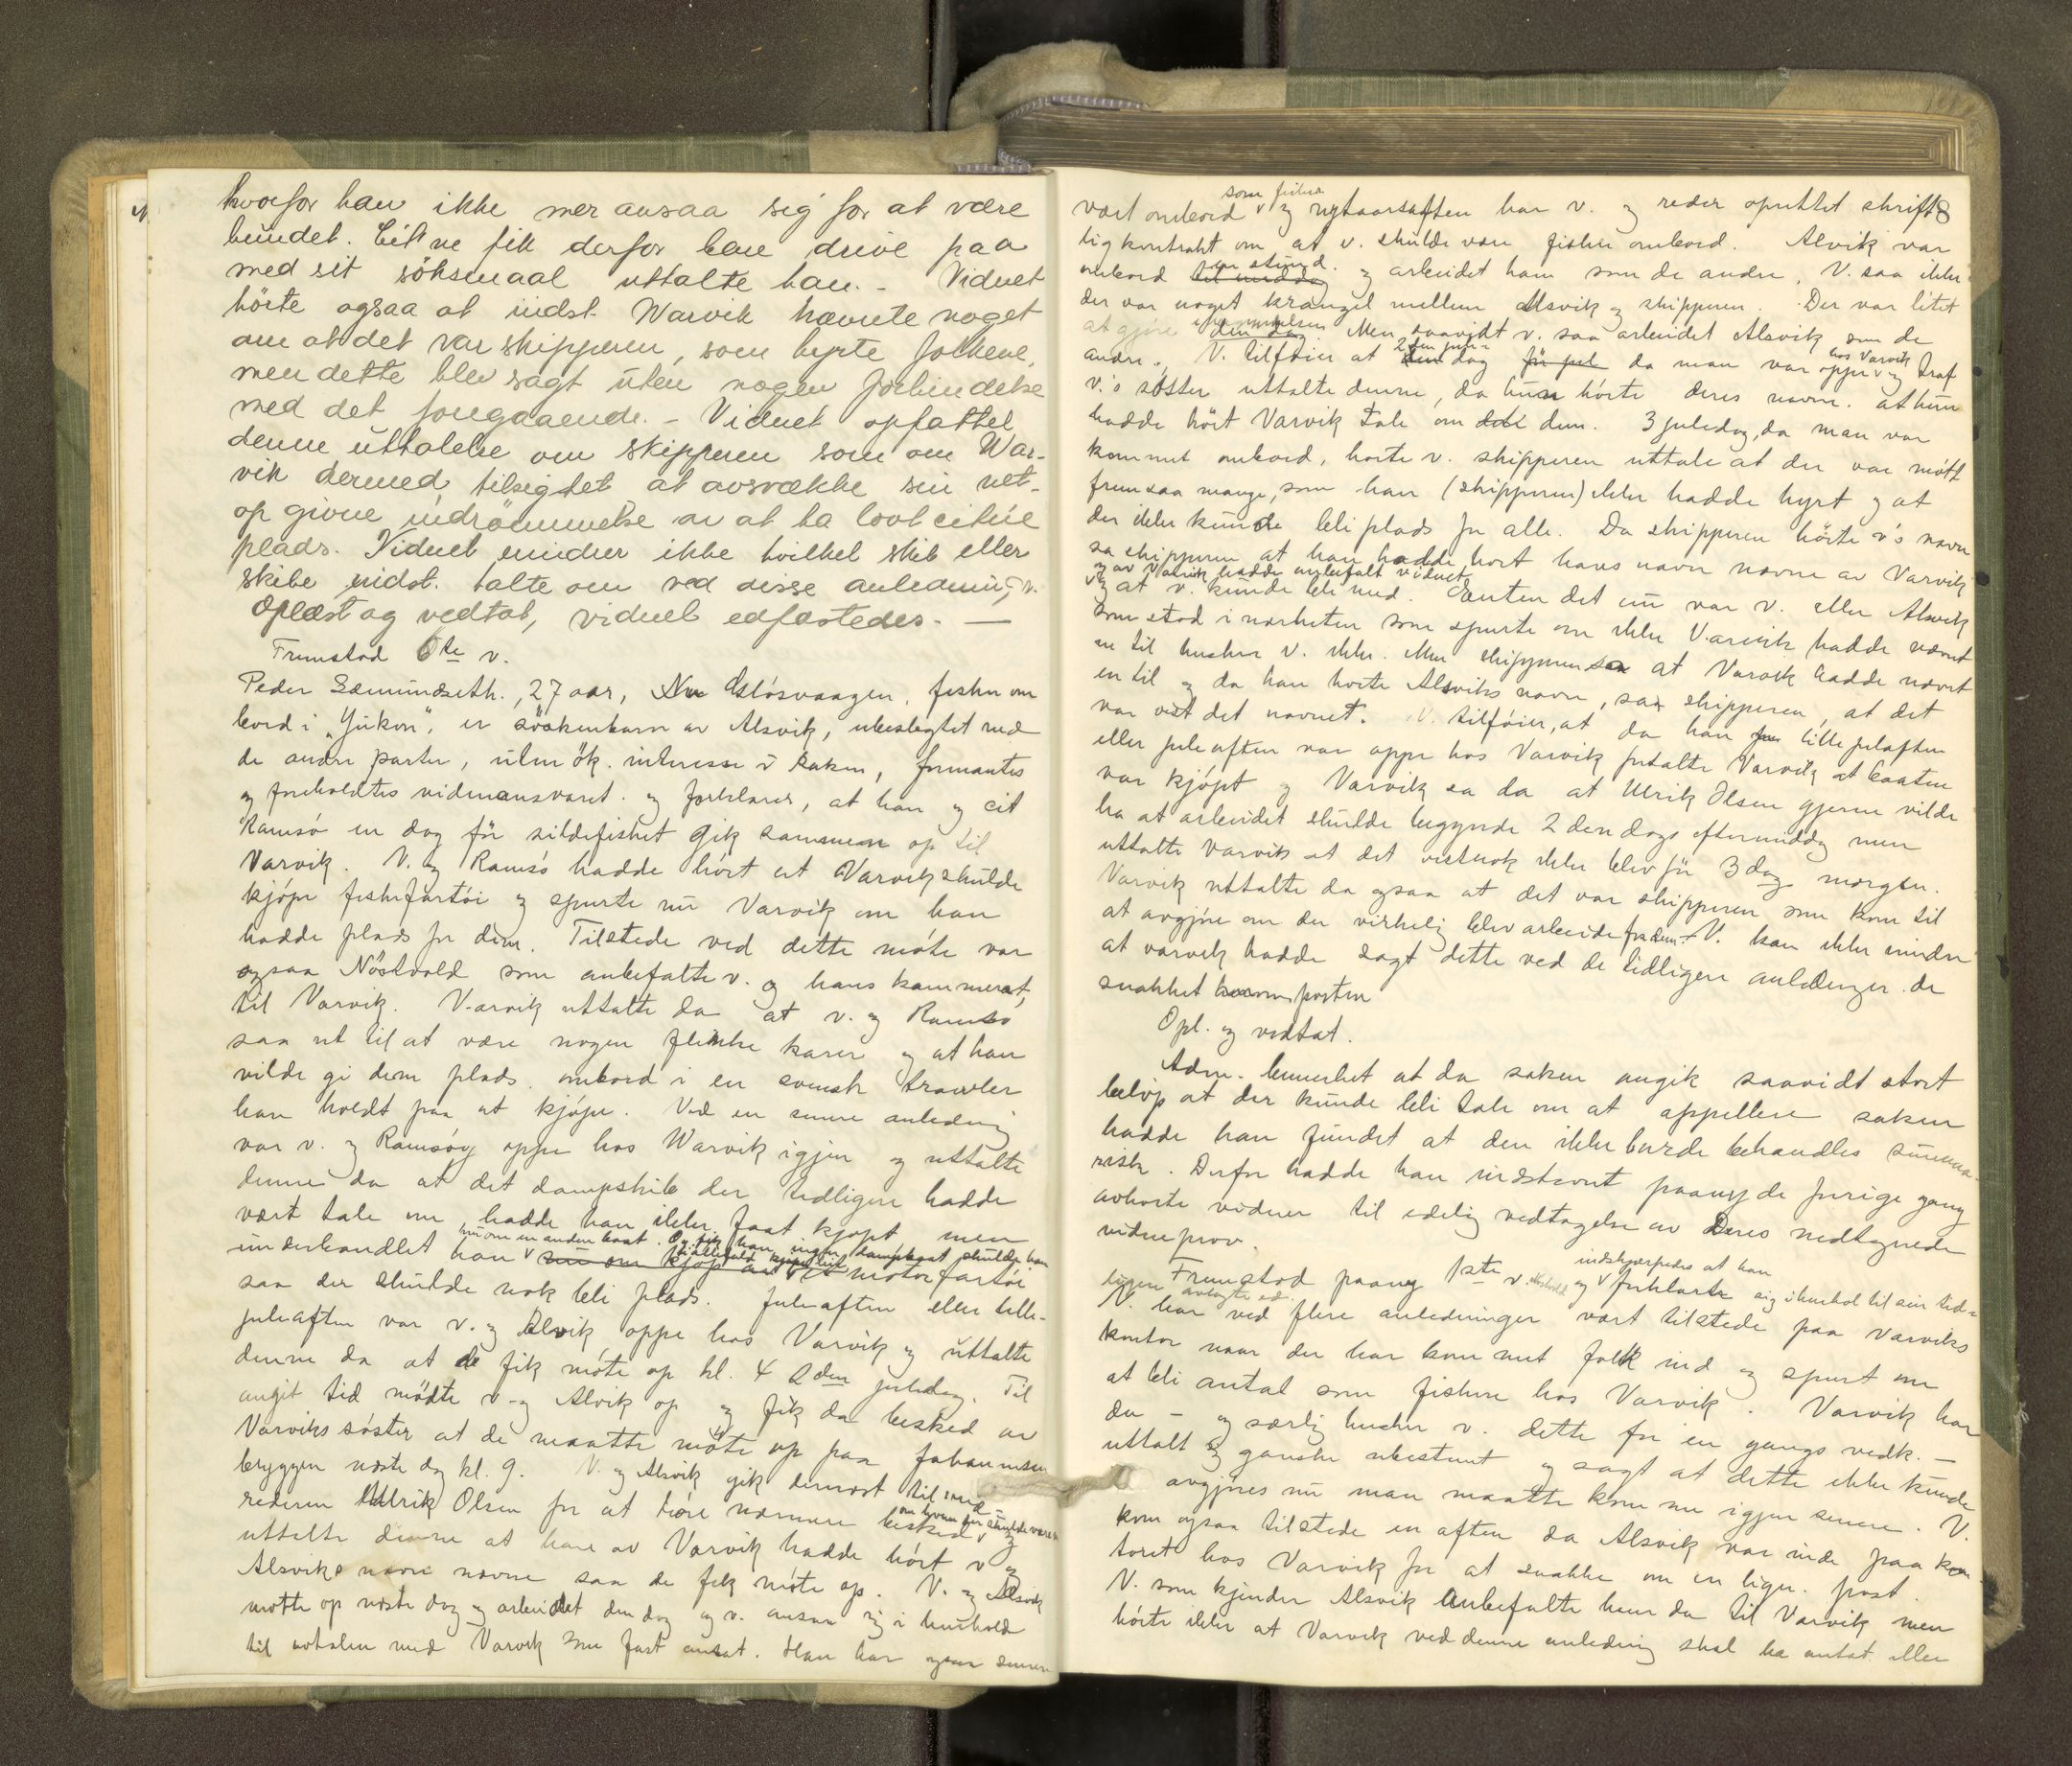 hvorfor han ikke mer ansaa sig for at være
bundet. Cit'ne fik derfor bare drive paa
med sit söksmaal uttalte han. - Vidnet
hörte ogsaa at indst. Warvik nævnte noget
om at det var skipperen, som hyrte folkene,
men dette blev sagt uten nogen forbindelse
med det foregaaende. - Vidnet opfattet
denne uttalelse om skipperen som om War-
vik dermed tilsigtet at avsvække sin net-
op givne indrömmelse av at ha lovt cit'ne
plads. Vidnet minder ikke hvilket skib eller
skibe indst. talte om ved disse anledning.
Oplæst og vedtat, vidnet edfæstedes. —
Fremstod 6te v.
Peder Sæmundseth., 27 aar, Ulósvaagen, fisker om
bord i "Yukon", er söskenbarn av Alsvik, ubeslegtet med
de andre parter, uten ök. interesse i saken, formantes
og foreholdtes vidneansvaret og forklarer, at han og cit
Ramsö en dag för sildefisket gik sammen op til
Varvik. V. og Ramsö hadde hört at Varvik skulde
kjöpe fiskefartöi og spurte nu Varvik om han
hadde plads for dem. Tilstede ved dette möte var
ogsaa Nöstvold som anbefalte v. og hans kammerat,
til Varvik. Varvik uttalte da at v. og Ramsö
saa ut til at være nogen flinke karer og at han
vilde gi dem plads ombord i en svensk trawler
han holdt paa at kjöpe. Ved en senere anledning
var v. og Ramsöy oppe hos Warvik igjen og uttalte
denne da at det dampskib der tidligere hadde
vært tale om, hadde han ikke faat kjöpt men
nu om en anden baat. Og fik han ingen dampbaat skulde han
underhandlet han v nu om kjöp av et motorfartöi
saa der skulde nok bli plads. Juleaften eller lille-
juleaften var v. og Alsvik oppe hos Varvik og uttalte
denne da at de fik möte op kl. 4 2den juledag. Til
angit tid mödte v. og Alvik op og fik da besked av
Varviks söster at de maatte möte op paa Johannesen
bryggen næste dag kl. 9. V. og Alsvik gik dernæst til med-
rederen Ulrik Olsen for at höre nærmere besked v og
uttalte denne at han av Varvik hadde hört v og
Alsviks navn nævne saa de fik möte op. V. og Alsvik
mötte op næste dag og arbeidet den dag og v. ansaa sig i henhold
til avtalen med Varvik som fast ansat. Han har ogsaa senere
8
som fisker
vært ombord v og nytaarsaften har v. og reder oprettet skrift-
lig kontrakt om at v. skulde være fisker ombord. Alvik var
en stund.
ombord til middag og arbeidet ham som de andre. V. saa ikke
der var noget krangel mellem Alsvik og skipperen. Der var litet
at gjöre den dag. Men saavidt v. saa arbeidet Alsvik som de
andre. V. tilföier at dag för jul da man var oppe v og traf
hos Varvik
v.'s söster uttalte denne, da hun hörte deres navne at hun
hadde hört Varvik tale om dem. 3 juledag, da man var
kommet ombord, hörte v. skipperen uttale at der var mött
frem saa mange, som han (skipperen) ikke hadde hyrt og at
der ikke kunde bli plads for alle. Da skipperen hörte v's navn
sa skipperen at han hadde hört hans navn nævne av Varvik
og av Varvik hadde anbefalt vidnet
og at v. kunde bli med. Enten det nu var v. eller Alsvik
som stod i nærheten som spurte om ikke Varvik hadde nævnt
en til husker v. ikke. Men skipperen sa at Varvik hadde nævnt
en til og da han hörte Alsviks navn, sa skipperen, at det
var vist det navnet. V. tilföier, at da han lille juleaften
eller juleaften var oppe hos Varvik fortalte Varvik at baaten
var kjöpt og Varvik sa da at Ulrik Olsen gjerne vilde
ha at arbeidet skulde begynde 2den dags eftermiddag men
uttalte Varvik at det vistnok ikke blev för 3 dag morgen.
Varvik uttalte da ogsaa at det var skipperen som kom til
at avgjöre om der virkelig blev arbeide for dem. V. kan ikke mindre
at varvik hadde sagt dette ved de tidligere anledninger de
snakket om posten
Opl. og vedtat.
Adm. bemerket at da saken angik saavidt stort
belöp at der kunde bli tale om at appellere saken
hadde han fundet at den ikke burde behandles summa-
risk. Derfor hadde han indstevnt paany de forrige gang
avhörte vidner til edelig vedtagelse av deres nedtegnede
vidneprov.
indskjærpedes at han
Fremstod paany 1ste v. Nöstvold og v forklarte sig i henhold til sin tid-
ligere avlagte ed.
V. har ved flere anledninger vært tilstede paa Varviks
kontor naar der har kommet folk ind og spurt om
at bli antat som fiskere hos Varvik. Varvik har
da - og særlig husker v. dette for en gangs vedk. —
uttalt sig ganske ubestemt og sagt at dette ikke kunde
avgjöres nu man maatte komme igjen senere. V.
kom ogsaa tilstede en aften da Alsvik var inde paa kon-
toret hos Varvik for at snakke om en lign. post.
V. som kjender Alsvik anbefalte ham da til Varvik men
hörte ikke at Varvik ved denne anledning skal ha antat eller